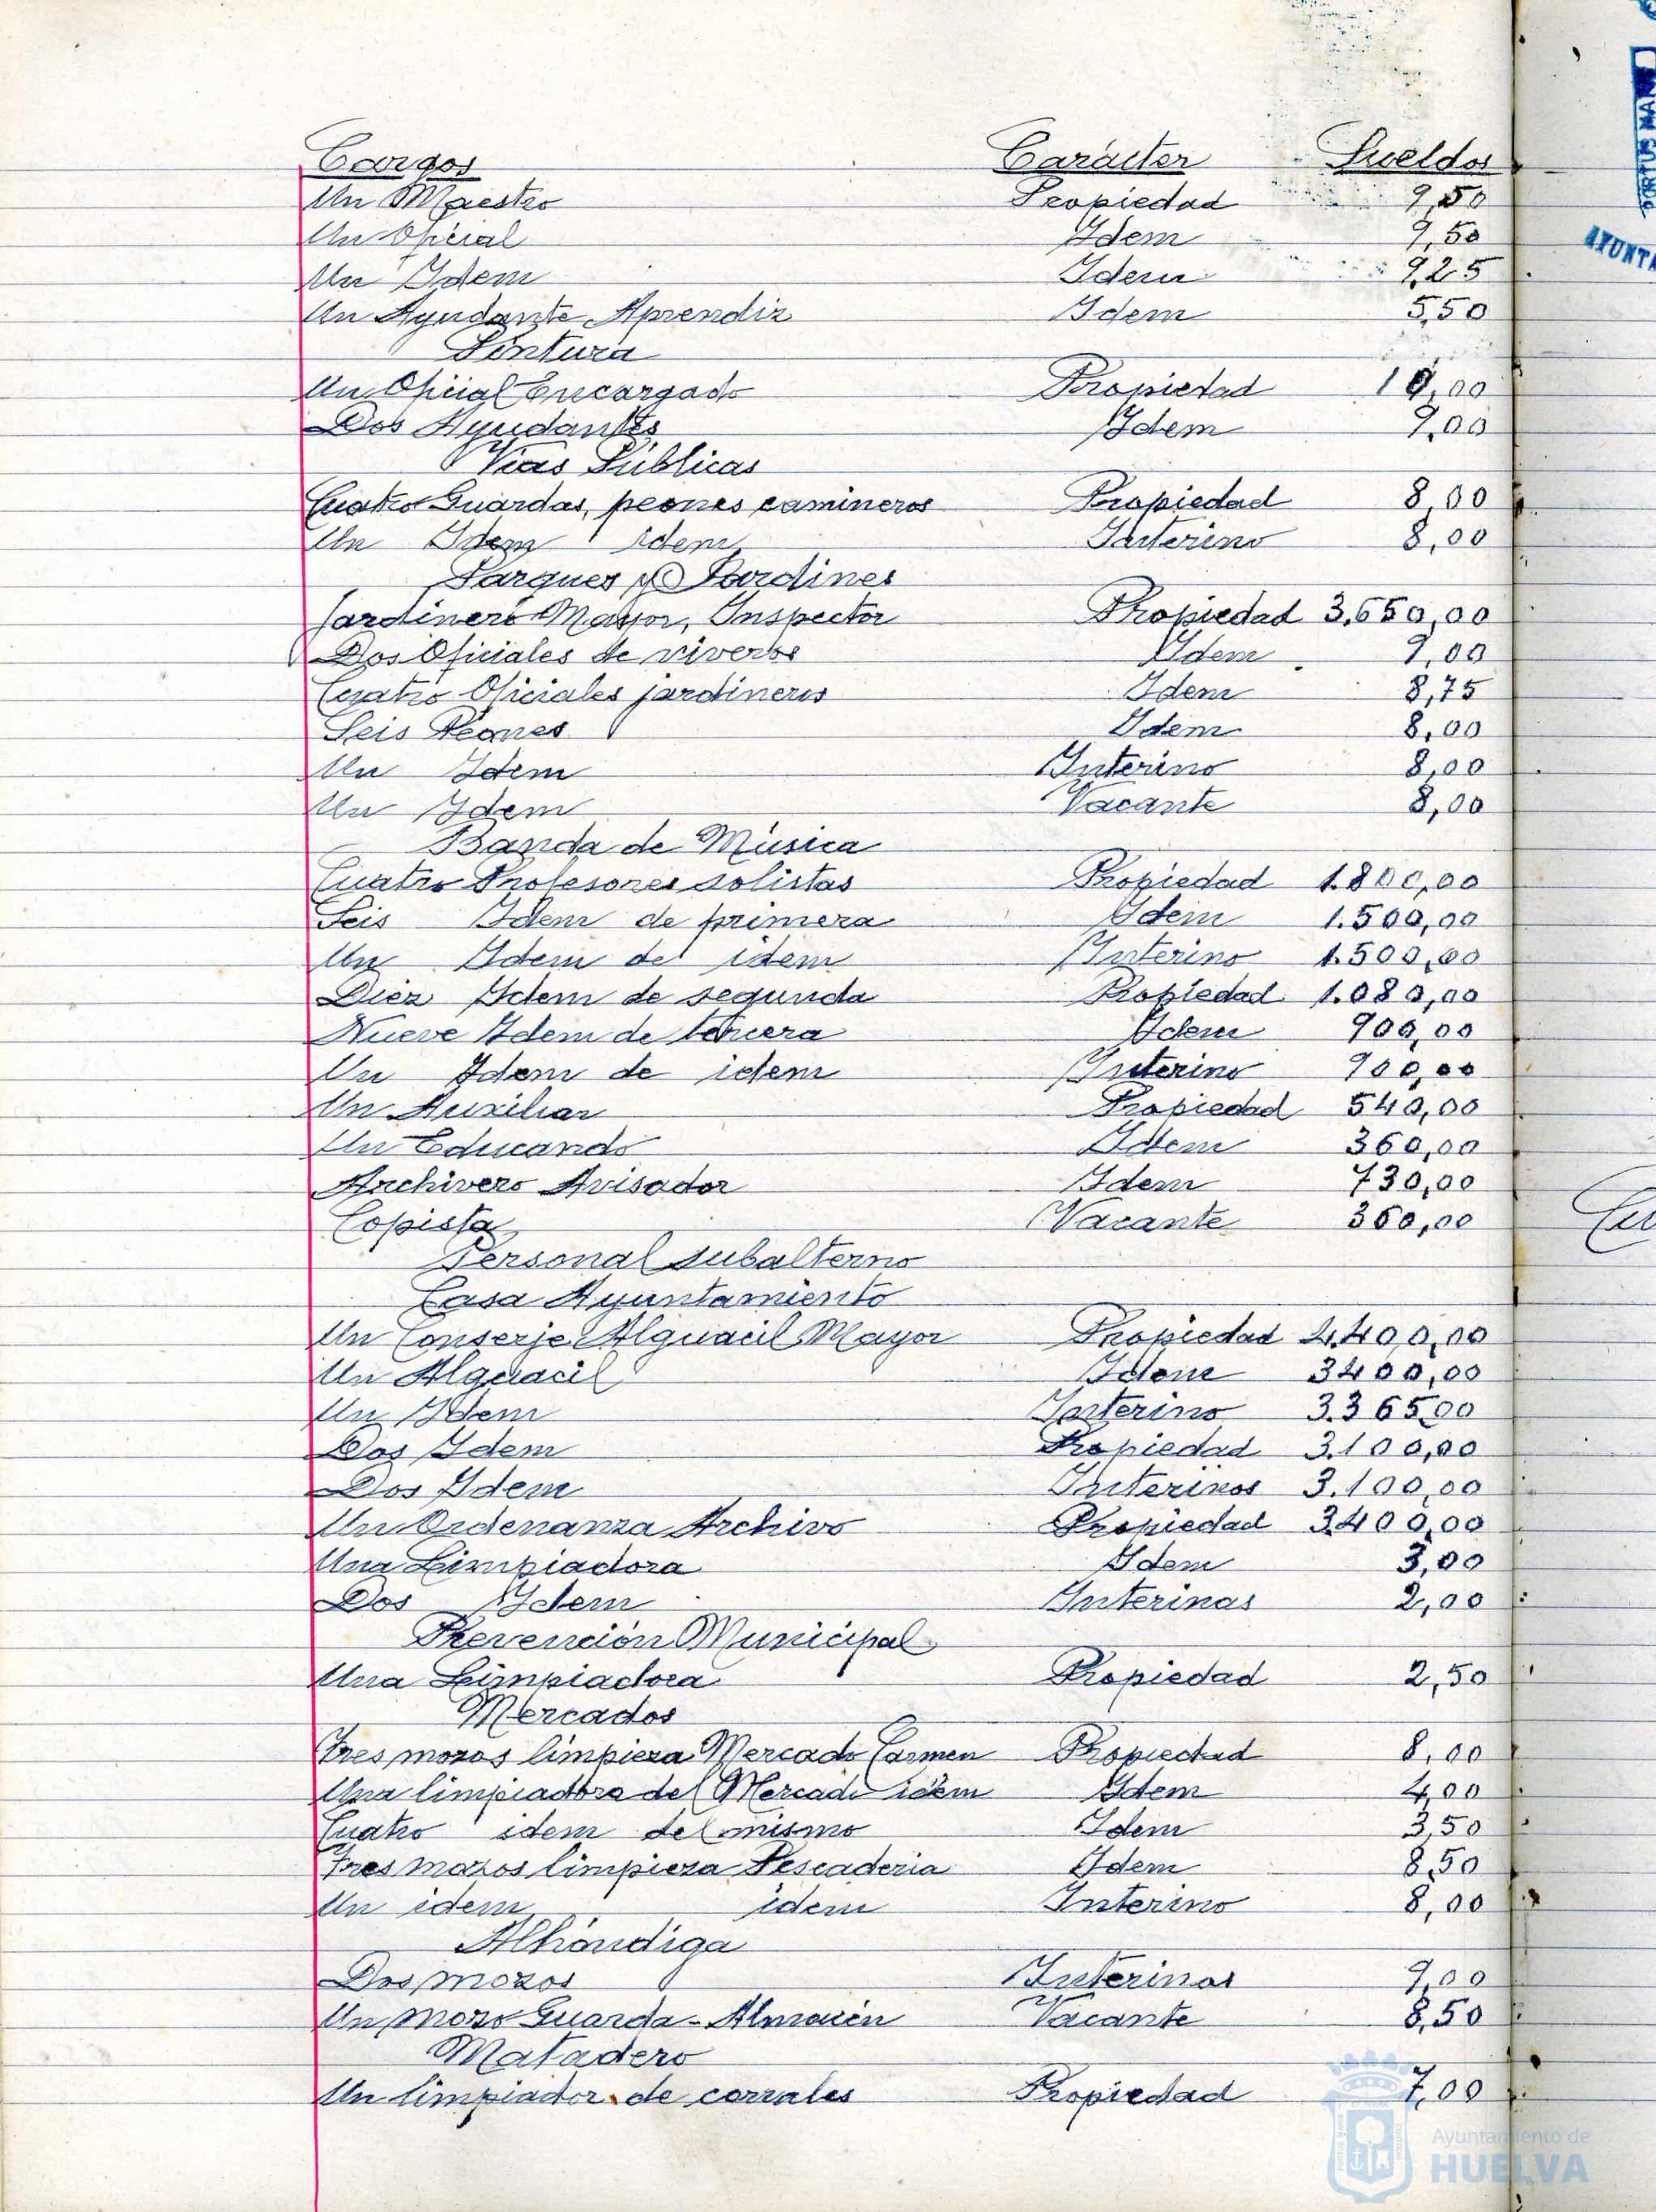 Cargos Carácter Sueldos
Un Maestro Propiedad 9,50
Un Oficial Idem 9,50
Un Idem Idem 9,25
Un Ayudante Aprendiz Idem 5,50
Pintura
Un Oficial Encargado Propiedad 10,00
Dos Ayudantes Idem 9,00
Vias Públicas
Cuatro Guardas, peones camineros Propiedad 8,00
Un Idem idem Interino 8,00
Parques y Jardines
Jardinero Mayor, Inspector Propiedad 3.650,00
Dos Oficiales de viveros Idem 9,00
Cuatro Oficiales jardineros Idem 8,75
Seis Peones Idem 8,00
Un Idem Interino 8,00
Un Idem Vacante 8,00
Banda de Música
Cuatro Profesores solistas Propiedad 1.800,00
Seis Idem de primera Idem 1.500,00
Un Idem de idem Interino 1.500,00
Diez Idem de segunda Propiedad 1.080,00
Nueve Idem de tercera Idem 900,00
Un Idem de idem Interino 900,00
Un Auxiliar Propiedad 540,00
Un Educando Idem 360,00
Archivero Avisador Idem 730,00
Copista Vacante 360,00
Personal subalterno
Casa Ayuntamiento
Un Conserje Alguacil Mayor Propiedad 4.400,00
Un Alguacil Idem 3400,00
Un Idem Interino 3.365,00
Dos Idem Propiedad 3.100,00
Dos Idem Interinos 3.100,00
Un Ordenanza Archivo Propiedad 3.400,00
Una Limpiadora Idem 3,00
Dos Idem Interinas 2,00
Prevención Municipal
Una Limpiadora Propiedad 2,50
Mercados
Tres mozos limpieza Mercado Carmen Propiedad 8,00
Una limpiadora del Mercado idem Idem 4,00
Cuatro idem del mismo Idem 3,50
Tres mozos limpieza Pescaderia Idem 8,50
Un idem idem Interino 8,00
Alhóndiga
Dos mozos Interinos 9,00
Un mozo Guarda-Almacén Vacante 8,50
Matadero
Un limpiador de corrales Propiedad 7,00
Ayuntamiento de
HUELVA